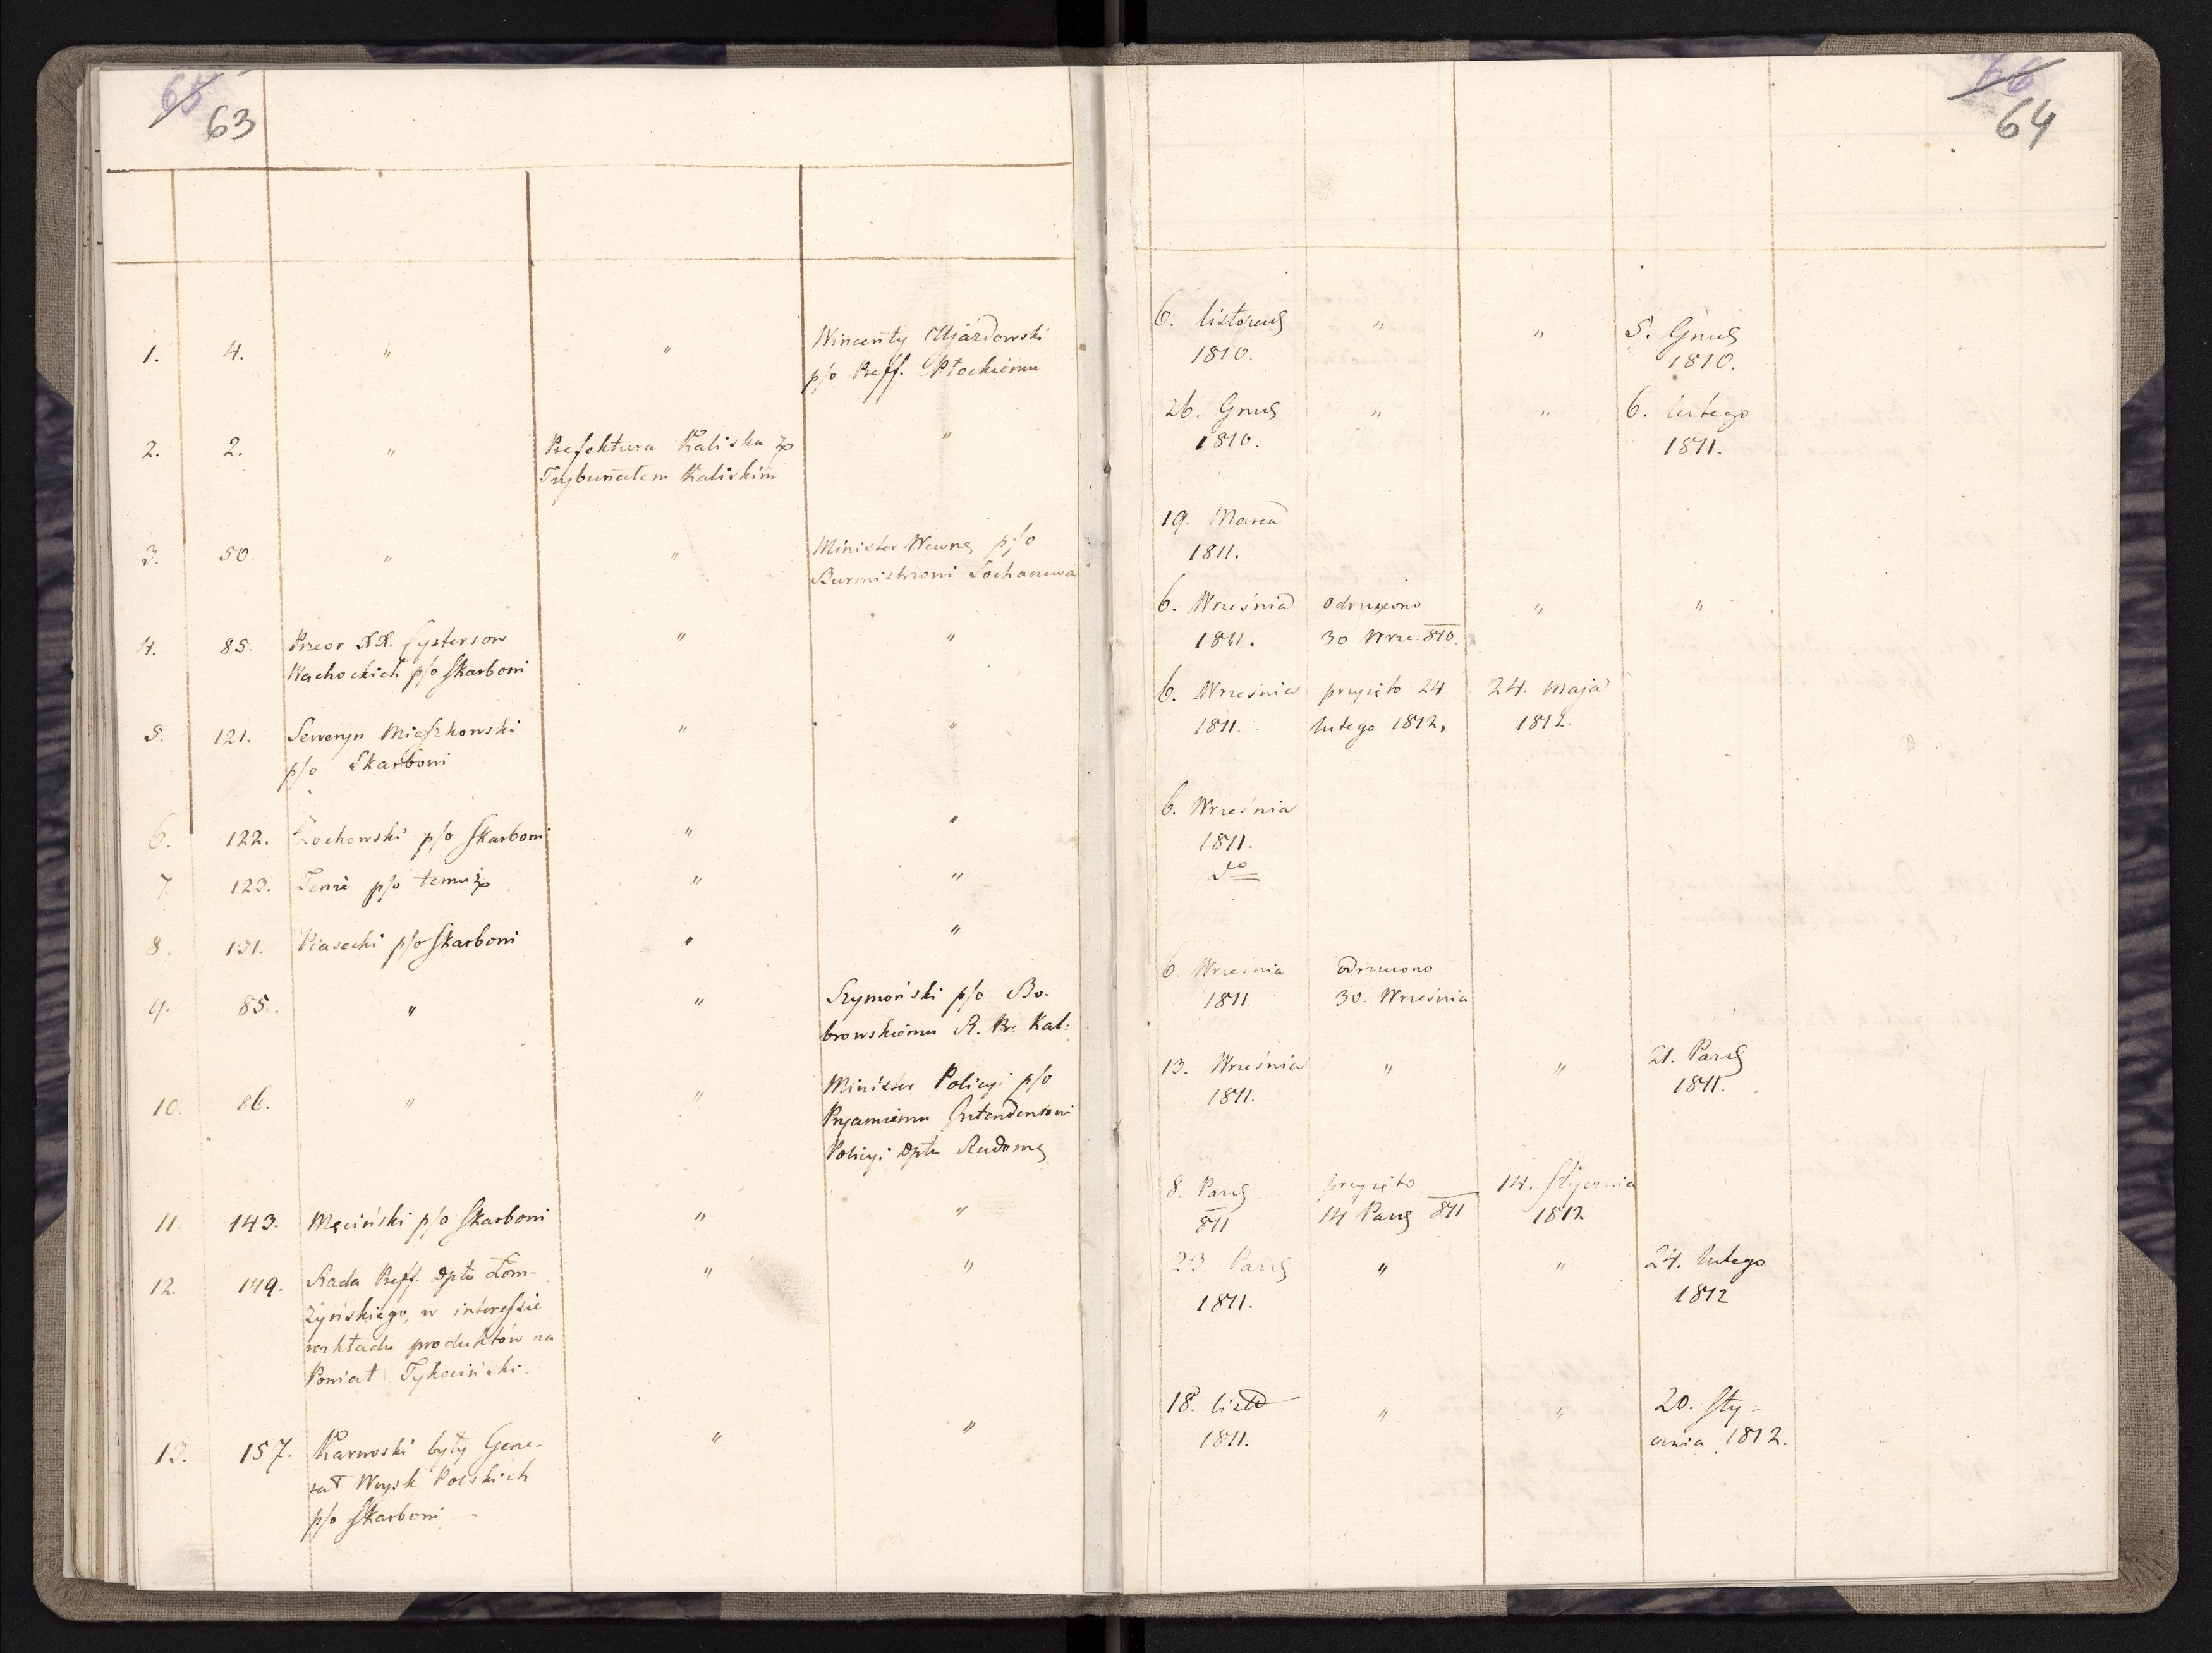 65
63
1. 4. " " Wincenty Ujazdowski
p/o Preff. Płockiemu
2. 2. " Prefektura Kaliska
Trybunałem Kaliskim "
3. 50. " " Minister Wewng p/o
Burmistrzowi Sochaczewa
4. 85. Przeor XX. Cystersow " "
Wachockich p/o Skarbowi
5. 121. Seweryn Mieszkowski " "
p/o Skarbowi
6. 122. Zochowski p/o Skarbowi " "
7. 123. Tenże p/o temuż " "
8. 131. Piasecki p/o Skarbowi " "
9. 85. " " Szymoński p/o Bo-
browskiemu R. Pr: Kal:
10. 86. " " Minister Policyi p/o
Intendentowi
Policyi Dptu Radomg
11. 143. Męciński p/o Skarbowi " "
12. 149. Rada Preff. Dptu Łom- " "
żyńskiego, w interessie
rozkładu produktów na
Powiat Tykociński.
13. 157. Karwoski były Gene- " "
rał Woysk Polskich
p/o Skarbowi
66
64
6. listopadg " " 5. Grudg
1810. 1810.
26. Grudg " " 6. lutego
1810. 1811.
19. Marca
1811.
6. Września odrzucono " "
1811. 30 Wrze: 810.
6. Września przyięto 24 24. Maja
1811. lutego 1812, 1812.
6. Września
1811.
do
6. Września odrzucono
1811. 30. Września
13. Września " " 21. Pazg
1811. 1811.
8. Pazg przyięto 14. Stycznia
811 14 Pazg 811 1812
23. Pazg " " 24. lutego
1811. 1812
18. listo " " 20. Sty-
1811. cznia 1812.